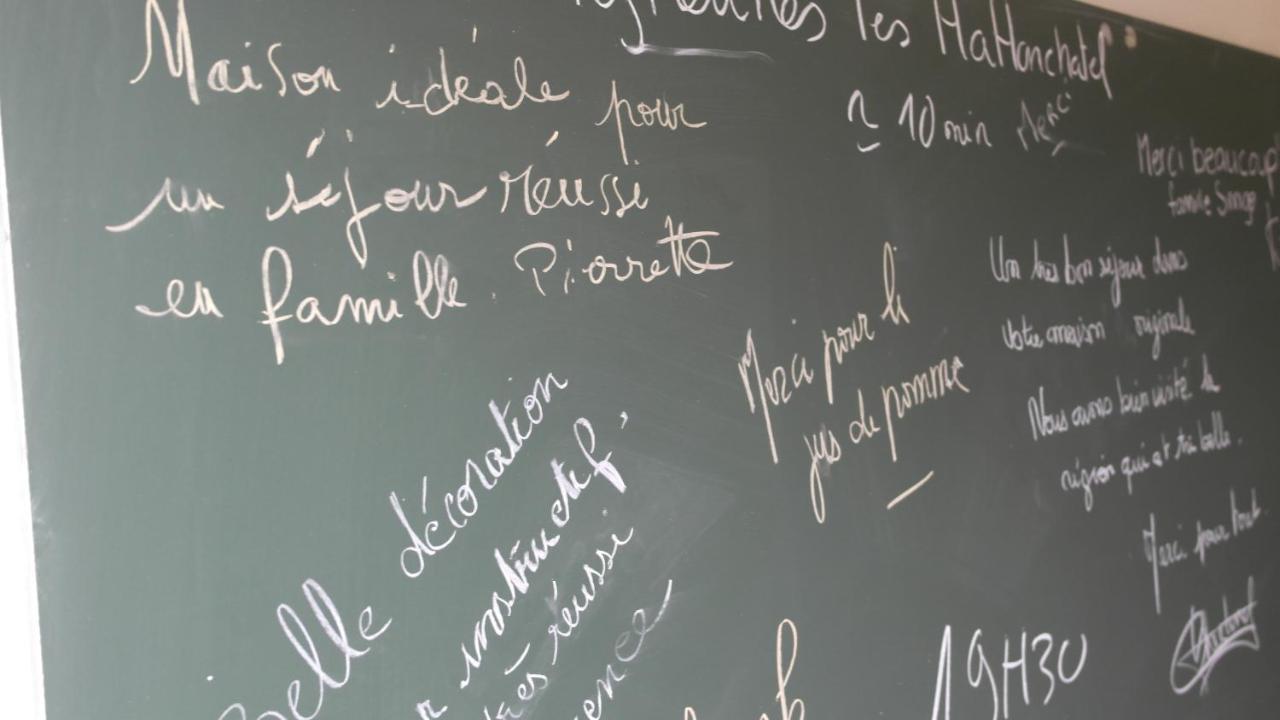 les HaHonchatel
≃ 10 min Merci
Maison idéale pour
un séjour réussi
en famille. Pierrette
Merci beaucoup
famille
Merci pour le
jus de pomme
Un très bon séjour dans
votre maison originale
Nous avons bien visité la
région qui est très belle.
Merci pour tout.
Belle décoration
instructif,
très réussi
19H30